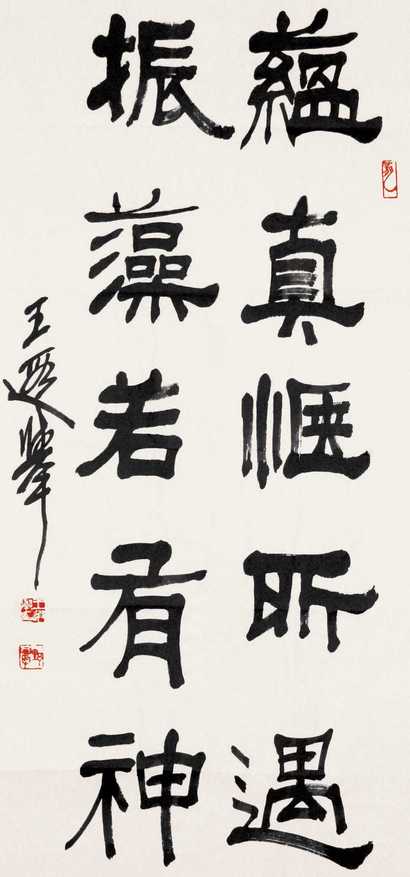 蘊真愜所遇
振藻若有神
王遐舉